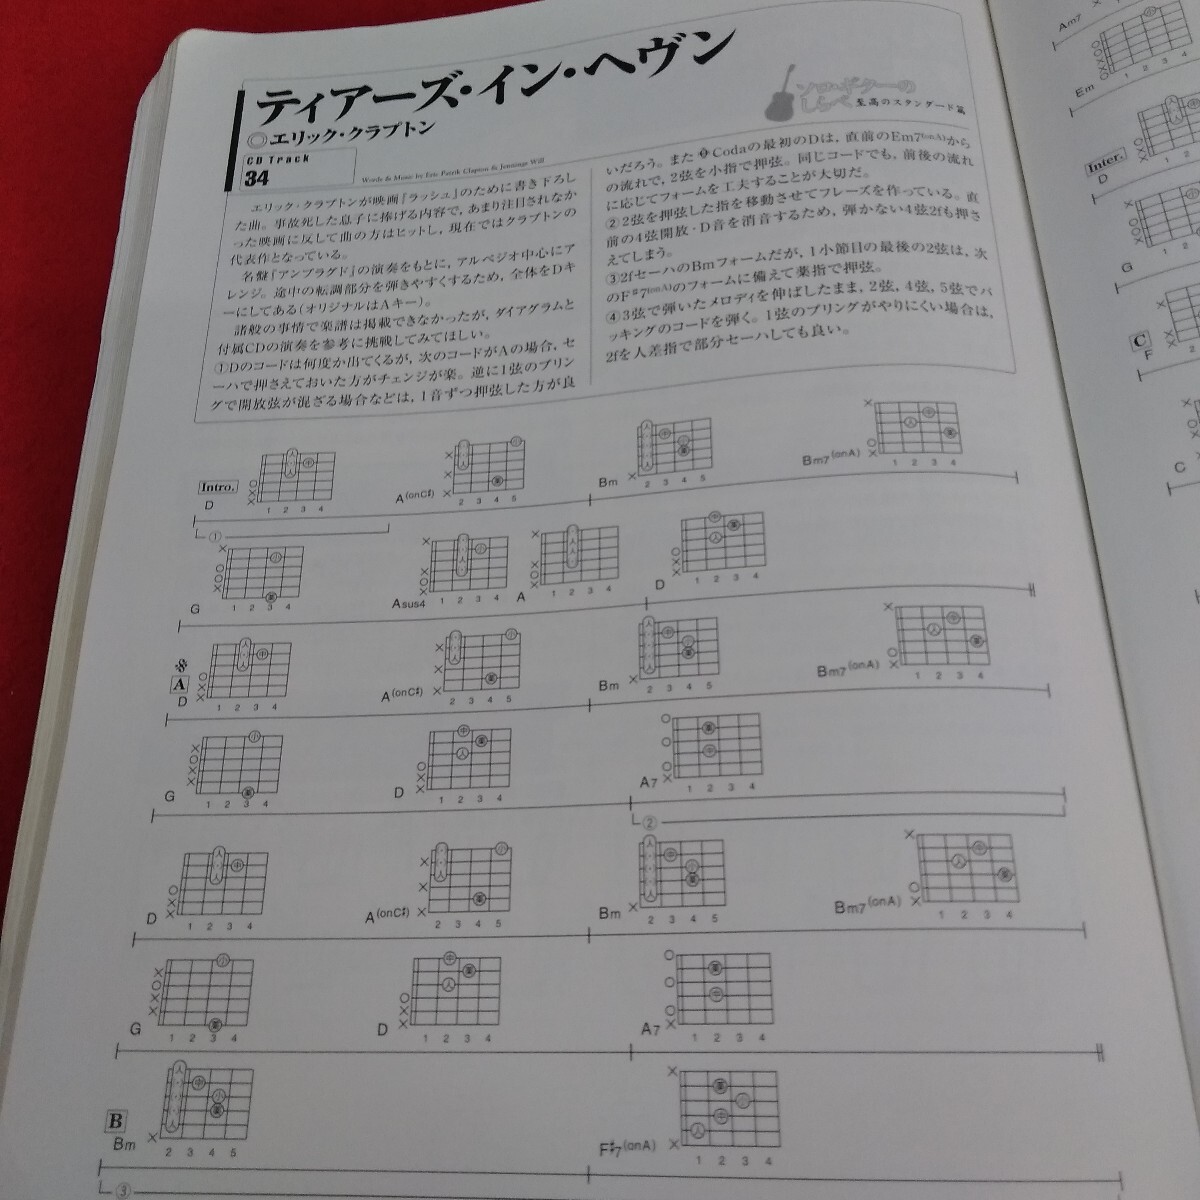 ティアーズ・イン・ヘヴン
◎エリック・クラプトン
ソロ・ギターの
しらべ 至高のスタンダード篇
CD Track
34
Words & Music by Eric Patrik Clapton & Jennings Will
エリック・クラプトンが映画『ラッシュ』のために書き下ろし
た曲。事故死した息子に捧げる内容で，あまり注目されなか
った映画に反して曲の方はヒットし，現在ではクラプトンの
代表作となっている。
名盤『アンプラグド』の演奏をもとに，アルペジオ中心にア
レンジ。途中の転調部分を弾きやすくするため，全体をDキ
ーにしてある(オリジナルはAキー)。
諸般の事情で楽譜は掲載できなかったが，ダイアグラムと
付属CDの演奏を参考に挑戦してみてほしい。
①Dのコードは何度か出てくるが，次のコードがAの場合，セ
ーハで押さえておいた方がチェンジが楽。逆に1弦のプリン
グで開放弦が混ざる場合などは，1音ずつ押弦した方が良
いだろう。また Codaの最初のDは，直前のEm7(onA)から
の流れで，2弦を小指で押弦。同じコードでも，前後の流れ
に応じてフォームを工夫することが大切だ。
②2弦を押弦した指を移動させてフレーズを作っている。直
前の4弦開放・D音を消音するため，弾かない4弦2fも押さ
えてしまう。
③2fセーハのBmフォームだが，1小節目の最後の2弦は，次
のF♯7(onA)のフォームに備えて薬指で押弦。
④3弦で弾いたメロディを伸ばしたまま，2弦，4弦，5弦でバ
ッキングのコードを弾く。1弦のプリングがやりにくい場合は，
2fを人差指で部分セーハしても良い。
Intro.
D 1 2 3 4
A(onC♯) 2 3 4 5
Bm 2 3 4 5
Bm7(onA) 1 2 3 4
①
G 1 2 3 4
Asus4 1 2 3 4
A 1 2 3 4
D 1 2 3 4
A
D 1 2 3 4
A(onC♯) 2 3 4 5
Bm 2 3 4 5
Bm7(onA) 1 2 3 4
G 1 2 3 4
D 1 2 3 4
A7 1 2 3 4
②
D 1 2 3 4
A(onC♯) 2 3 4 5
Bm 2 3 4 5
Bm7(onA) 1 2 3 4
G 1 2 3 4
D 1 2 3 4
A7 1 2 3 4
B
Bm 2 3 4 5
F♯7(onA) 1 2 3 4
③
Am7
Em 1 2 3 4
Inter.
D
G
C
F
C